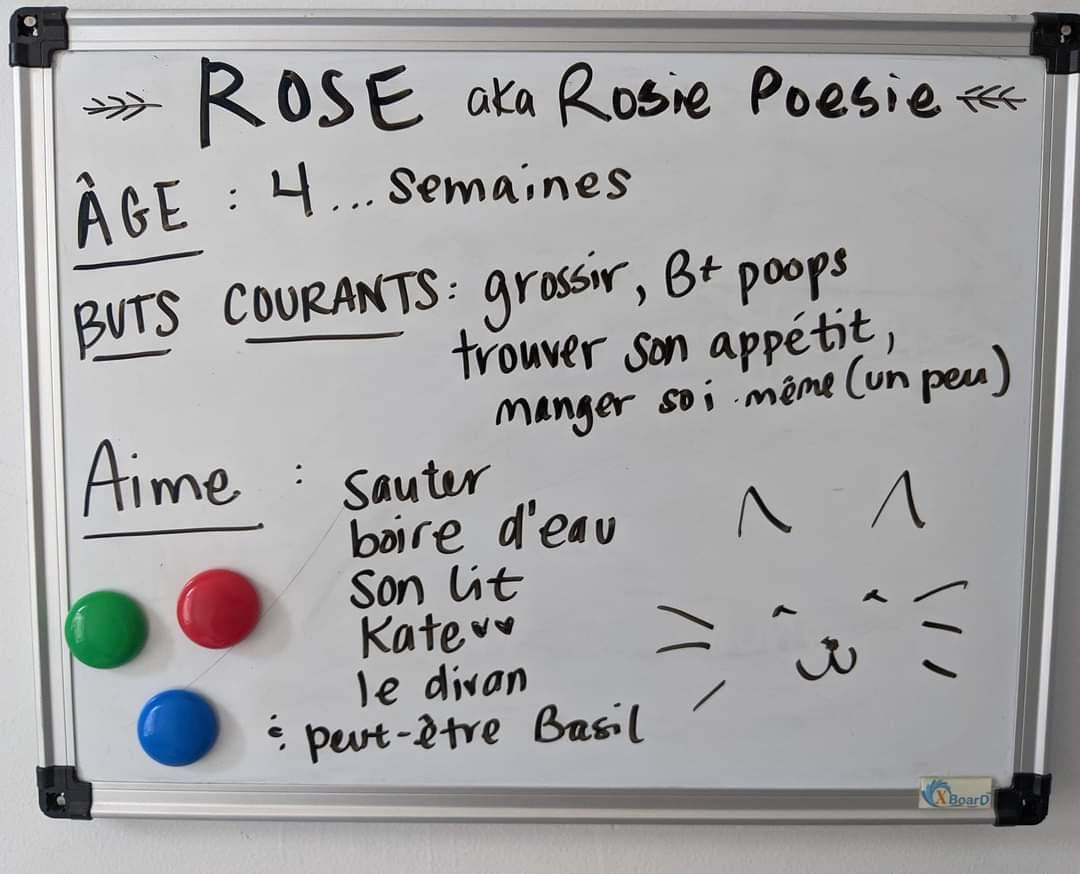 ROSE aka Rosie Poesie
ÂGE : 4... semaines
BUTS COURANTS: grossir, B+ poops
trouver son appétit,
manger soi-même (un peu)
Aime : sauter
boire d'eau
son lit
Kate ♥♥
le divan
: peut-être Basil
XBoarD